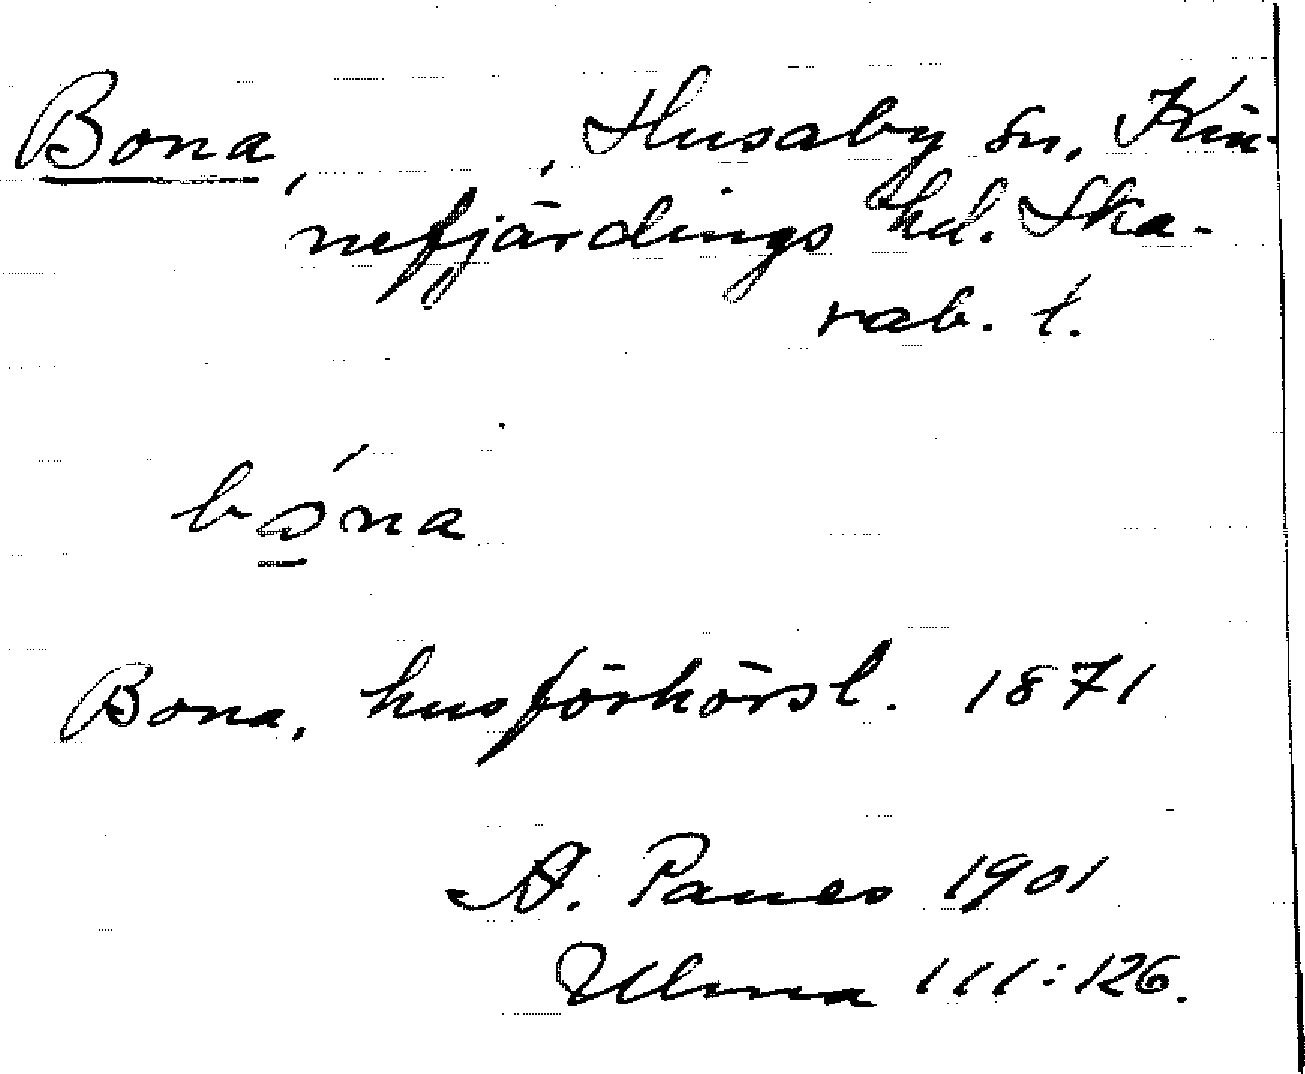 Bona, , Husaby sn, Kin-
nefjärdings hd. Ska-
rab. l.
bó̲na
Bona, husförhörsl. 1871
A. Panes 1901
Ulma 111:126.